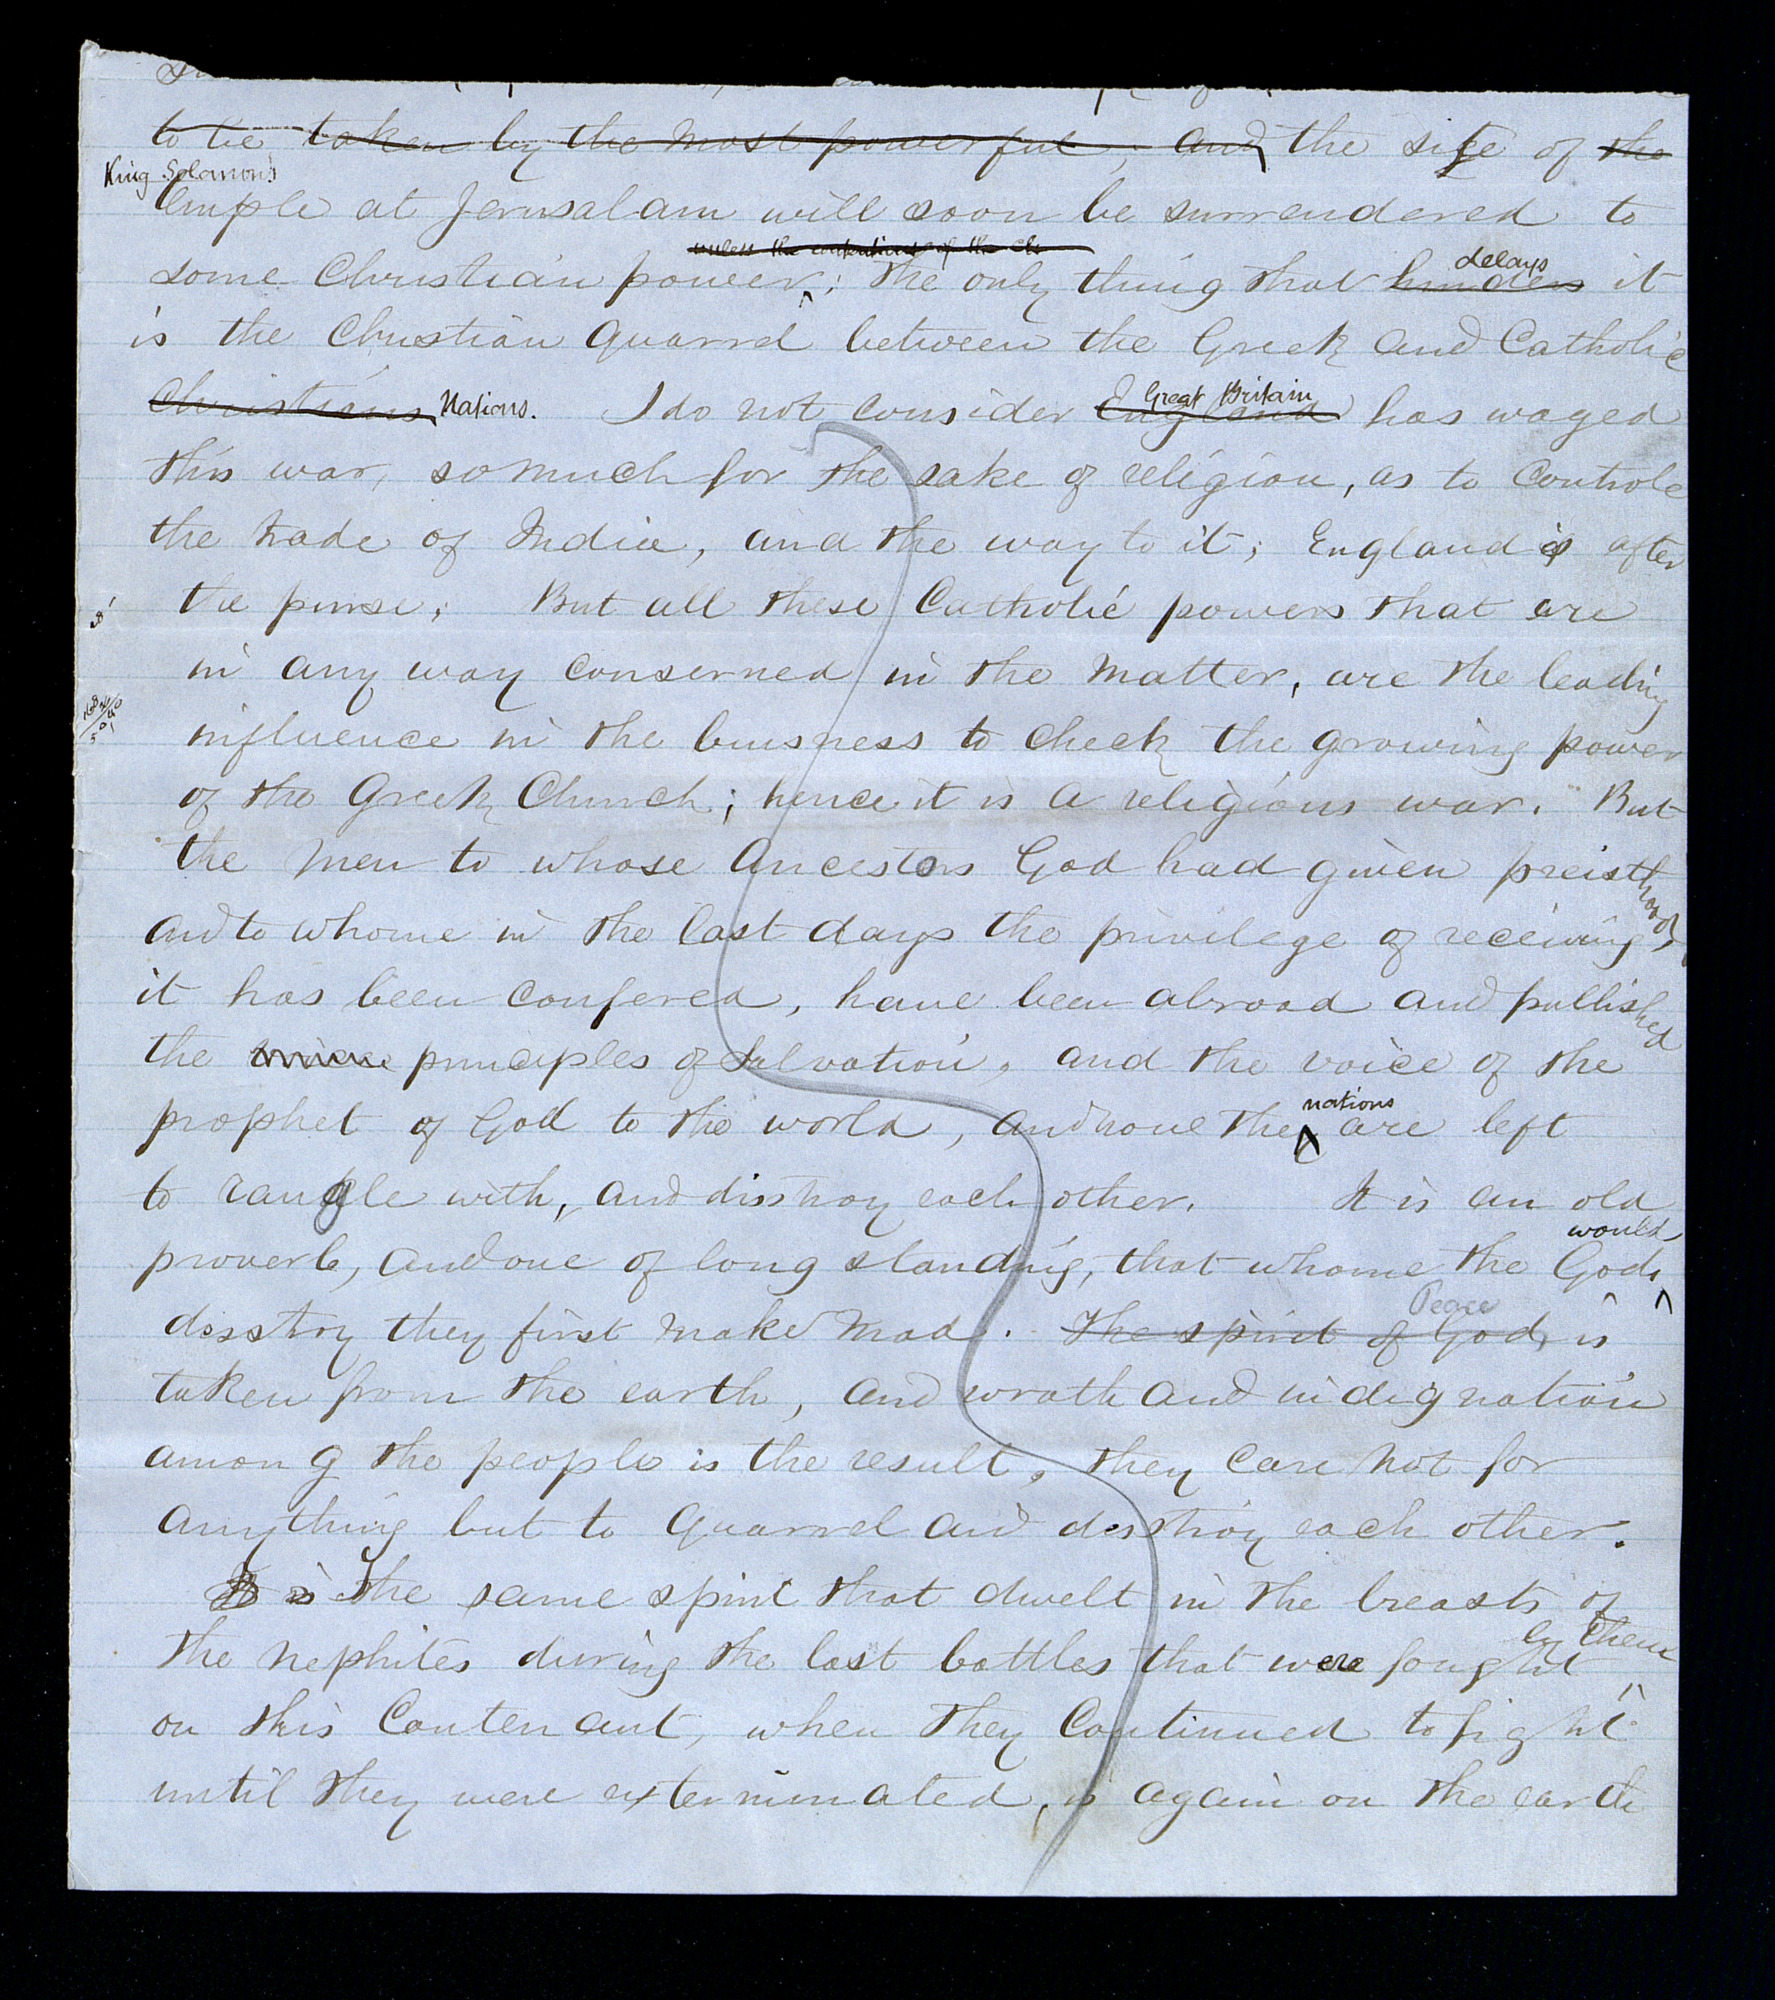 to be taken by the most powerful, and the site of the
King Solomon's
temple at Jerusalam will soon be surrendered to
unless the contentions of the Ch
delays
some Christian power; the only thing that hinders it
is the Christian quarrel between the Greek and Catholic
Great Britain
Christians Nations. I do not consider England has waged
this war, so much for the sake of religion, as to controle
the trade of India, and the way to it; England is after
the purse; But all these Catholic powers that are
in any way conserned in the matter, are the leading
influence in the buisness to check the growing power
of the Greek Church; hence it is a religious war. But
the men to whose ancestors God had given preisthood,
and to whome in the last days the privilege of receiving
it has been confered, have been abroad and published
the principles of Salvation, and the voice of the
nations
prophet of God to the world, and now the are left
to rangle with, and disstroy each other. It is an old
would
proverb, and one of long standing, that whome the Gods
Peace
disstroy they first make mad. The spirit of God, is
taken from the earth, and wrath and indignation
among the people is the result, they care not for
anything but to quarrel and desstroy each other.
It is The same spirit that dwelt in the breasts of
by them
the nephites during the last battles that were fought
on this Contenant, when they continued to fight
until they were exterminated, is again on the earth